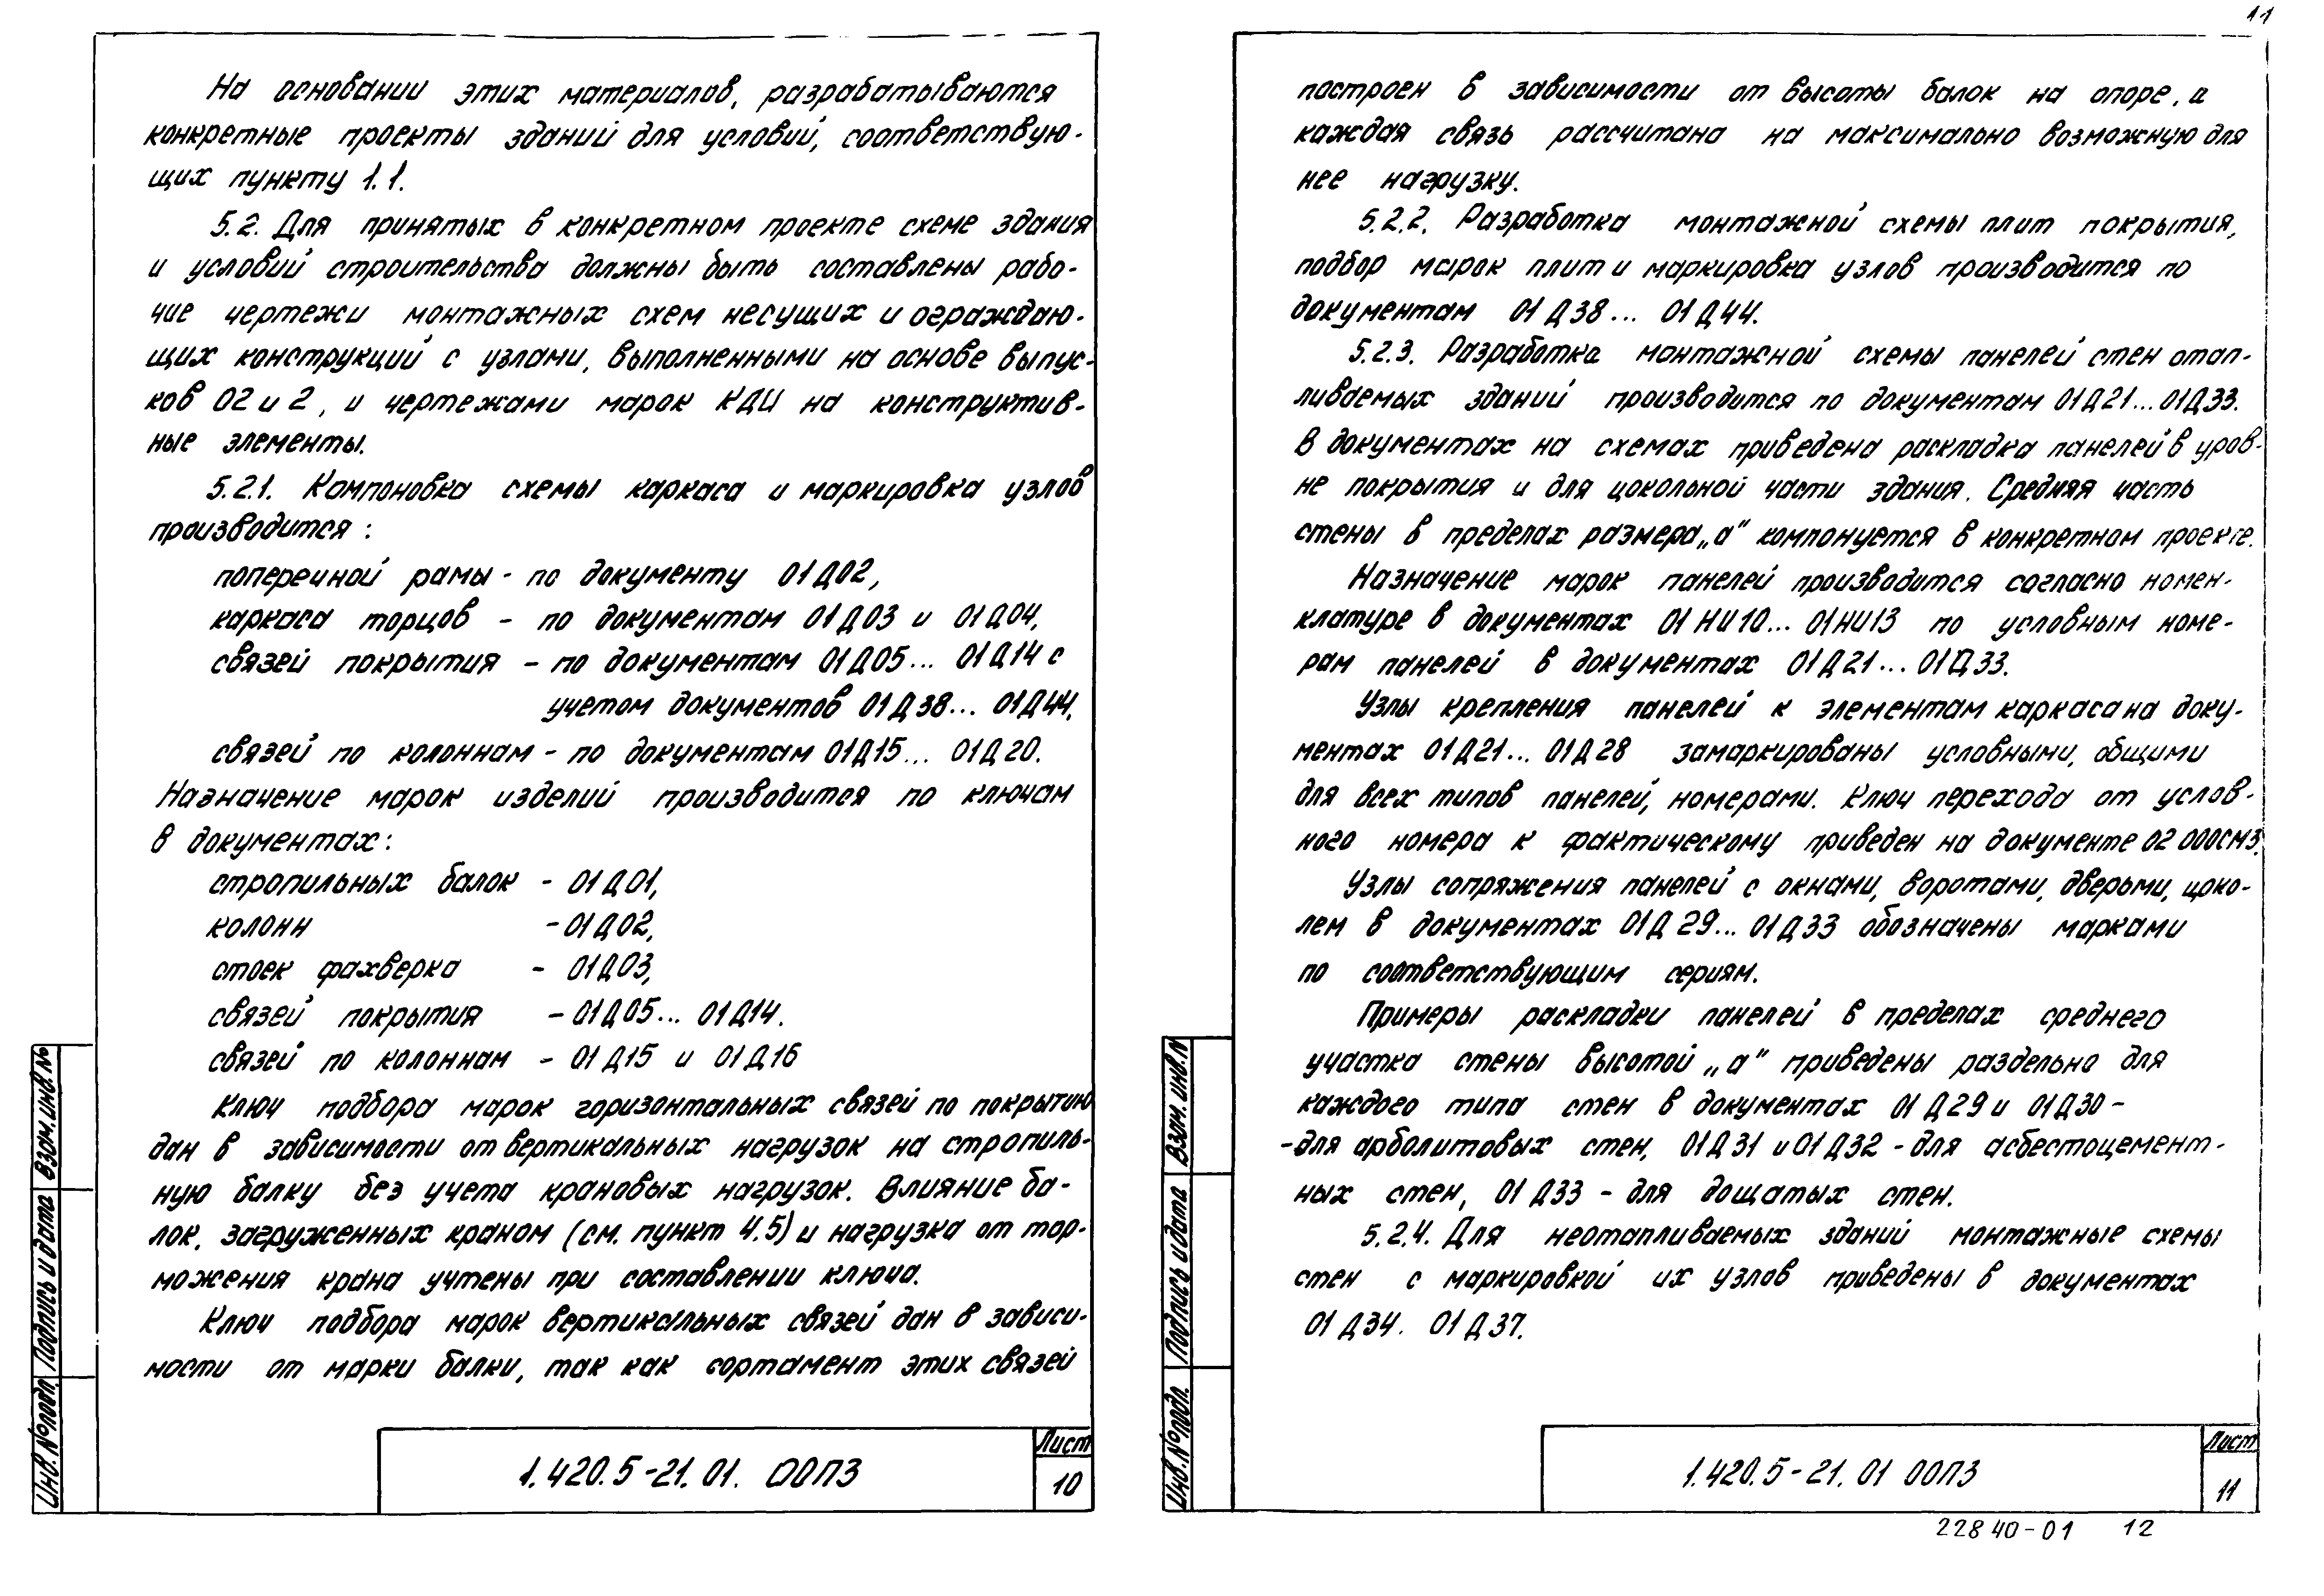 На основании этих материалов, разрабатываются
конкретные проекты зданий для условий, соответствую-
щих пункту 1.1.
5.2. Для принятых в конкретном проекте схеме здания
и условий строительства должны быть составлены рабо-
чие чертежи монтажных схем несущих и ограждаю-
щих конструкций с узлами, выполненными на основе выпус-
ков 02 и 2, и чертежами марок КДИ на конструктив-
ные элементы.
5.2.1. Компоновка схемы каркаса и маркировка узлов
производится:
поперечной рамы - по документу 01Д02,
каркаса торцов - по документам 01Д03 и 01Д04,
связей покрытия - по документам 01Д05... 01Д14 с
учетом документов 01Д38... 01Д44.
связей по колоннам - по документам 01Д15... 01Д20.
Назначение марок изделий производится по ключам
в документах:
стропильных балок - 01Д01,
колонн - 01Д02,
стоек фахверка - 01Д03,
связей покрытия - 01Д05... 01Д14.
связей по колоннам - 01Д15 и 01Д16
Ключ подбора марок горизонтальных связей по покрытию
дан в зависимости от вертикальных нагрузок на стропиль-
ную балку без учета крановых нагрузок. Влияние ба-
лок, загруженных краном (см. пункт 4.5) и нагрузка от тор-
можения крана учтены при составлении ключа.
Ключ подбора марок вертикальных связей дан в зависи-
мости от марки балки, так как сортамент этих связей
Инв.№подл. Подпись и дата Взам.инв.№
1.420.5-21.01. 00ПЗ
Лист
10
11
построен в зависимости от высоты балок на опоре, а
каждая связь рассчитана на максимально возможную для
нее нагрузку.
5.2.2. Разработка монтажной схемы плит покрытия,
подбор марок плит и маркировка узлов производится по
документам 01Д38... 01Д44.
5.2.3. Разработка монтажной схемы панелей стен отап-
ливаемых зданий производится по документам 01Д21...01Д33.
В документах на схемах приведена раскладка панелей в уров-
не покрытия и для цокольной части здания. Средняя часть
стены в пределах размера „а" компонуется в конкретном проекте.
Назначение марок панелей производится согласно номен-
клатуре в документах 01НИ10... 01НИ13 по условным номе-
рам панелей в документах 01Д21... 01Д33.
Узлы крепления панелей к элементам каркаса на доку-
ментах 01Д21... 01Д28 замаркированы условными, общими
для всех типов панелей, номерами. Ключ перехода от услов-
ного номера к фактическому приведен на документе 02 000СМ3.
Узлы сопряжения панелей с окнами, воротами, дверьми, цоко-
лем в документах 01Д29... 01Д33 обозначены марками
по соответствующим сериям.
Примеры раскладки панелей в пределах среднего
участка стены высотой „а" приведены раздельно для
каждого типа стен в документах 01Д29 и 01Д30 -
- для арболитовых стен, 01Д31 и 01Д32 - для асбестоцемент-
ных стен, 01Д33 - для дощатых стен.
5.2.4. Для неотапливаемых зданий монтажные схемы
стен с маркировкой их узлов приведены в документах
01Д34. 01Д37.
Инв.№подл. Подпись и дата Взам.инв.№
1.420.5-21.01 00ПЗ
Лист
11
22840-01 12